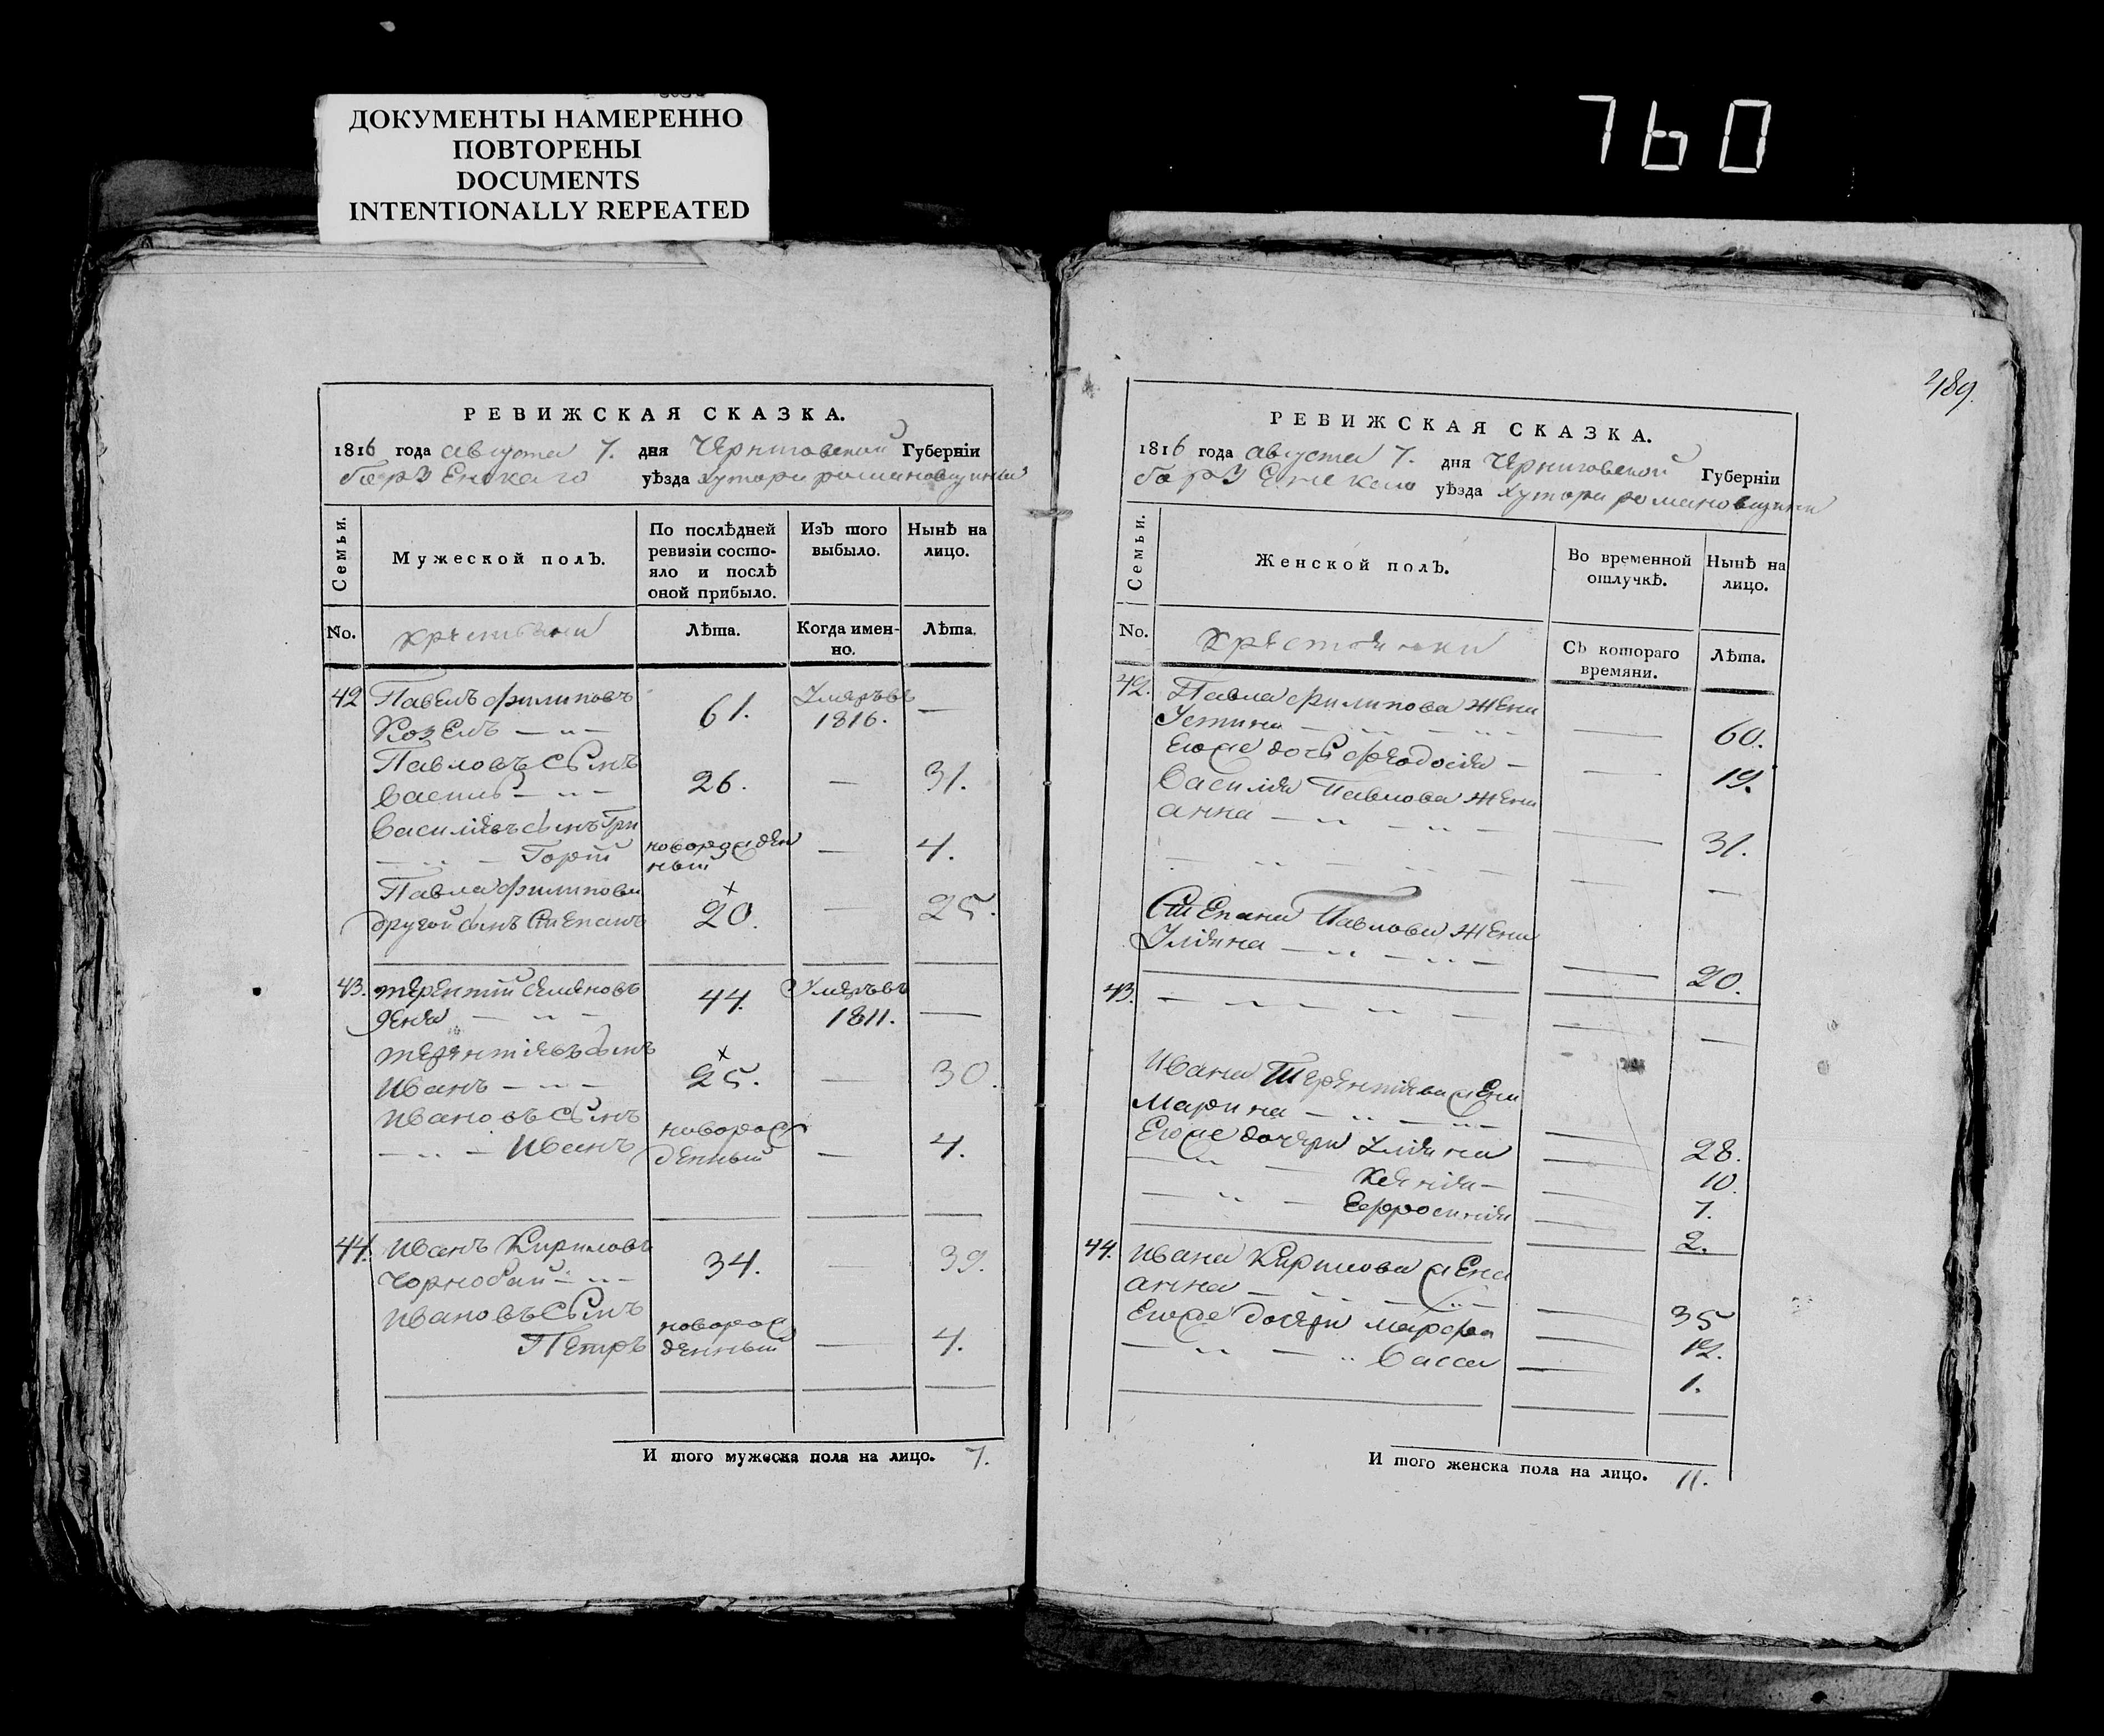 ДОКУМЕНТЫ НАМЕРЕННО
ПОВТОРЕНЫ
DOCUMENTS
INTENTIONALLY REPEATED
760
РЕВИЖСКАЯ СКАЗКА.
1816 года августа 7. дня Черниговской Губерніи
борзенскаго уѣзда хутора романовщини
Семьи.
Мужеской полъ.
По послѣдней
ревизіи состо-
яло и послѣ
оной прибыло.
Изъ того
выбыло.
Нынѣ на
лицо.
No.
крестьяни
Лѣта.
Когда имен-
но.
Лѣта.
42 Павелъ филиповъ
Козелъ 61. Умеръвъ 1816. —
Павловъ сынъ
Василь 26. — 31.
Василіевъ сынъ Гри
горій новорожден
ный — 4.
Павла филипова
другой сынъ Степанъ 20. — 25.
43. терентій семеновъ
44. Умеръвъ 1811. —
терентіевъ сынъ
Иванъ 25. — 30.
Ивановъ сынъ
Иванъ новорож
денный — 4.
44. Иванъ Кириловъ
Чорнобай 34. — 39.
Ивановъ сынъ
Петръ новорож
денный — 4.
И того мужеска пола на лицо. 7.
489.
РЕВИЖСКАЯ СКАЗКА.
1816 года августа 7. дня Черниговской Губерніи
борзенскаго уѣзда хутора романовщини
Семьи.
Женской полъ.
Во временной
отлучкѣ.
Нынѣ на
лицо.
No.
Крестьянки
Съ котораго
времяни.
Лѣта.
42. Павла филипова жена
Устина — 60.
Егоже дочь феодосія — 19.
Василія Павлова жена
анна — 31.
Степана Павлова жена
Уліяна — 20.
43.
Ивана Терентіева жена
Марина — 28.
Егоже дочери Уліяна — 10.
Ксенія — 7.
Ефросинія — 2.
44. Ивана Кирилова жена
анна — 35
Егоже дочери марфа — 12.
Васса — 1.
И того женска пола на лицо. 11.